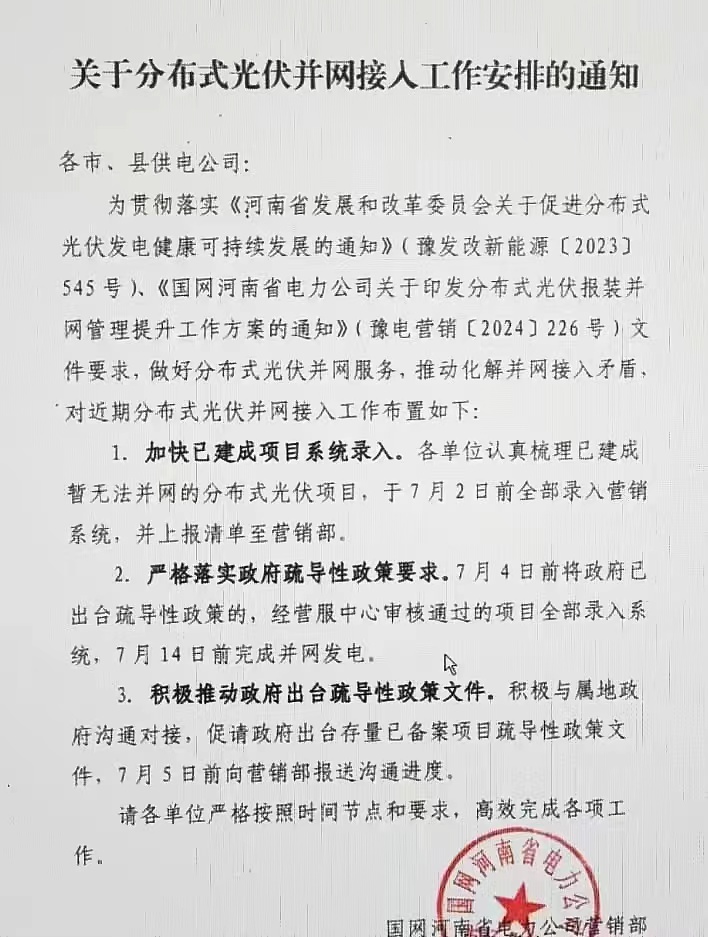 关于分布式光伏并网接入工作安排的通知
各市、县供电公司：
为贯彻落实《河南省发展和改革委员会关于促进分布式
光伏发电健康可持续发展的通知》（豫发改新能源〔2023〕
545号）、《国网河南省电力公司关于印发分布式光伏报装并
网管理提升工作方案的通知》（豫电营销〔2024〕226号）文
件要求，做好分布式光伏并网服务，推动化解并网接入矛盾，
对近期分布式光伏并网接入工作布置如下：
1. 加快已建成项目系统录入。各单位认真梳理已建成
暂无法并网的分布式光伏项目，于7月2日前全部录入营销
系统，并上报清单至营销部。
2. 严格落实政府疏导性政策要求。7月4日前将政府已
出台疏导性政策的，经营服中心审核通过的项目全部录入系
统，7月14日前完成并网发电。
3. 积极推动政府出台疏导性政策文件。积极与属地政
府沟通对接，促请政府出台存量已备案项目疏导性政策文
件，7月5日前向营销部报送沟通进度。
请各单位严格按照时间节点和要求，高效完成各项工
作。
国网河南省电力公
国网河南省电力公司营销部